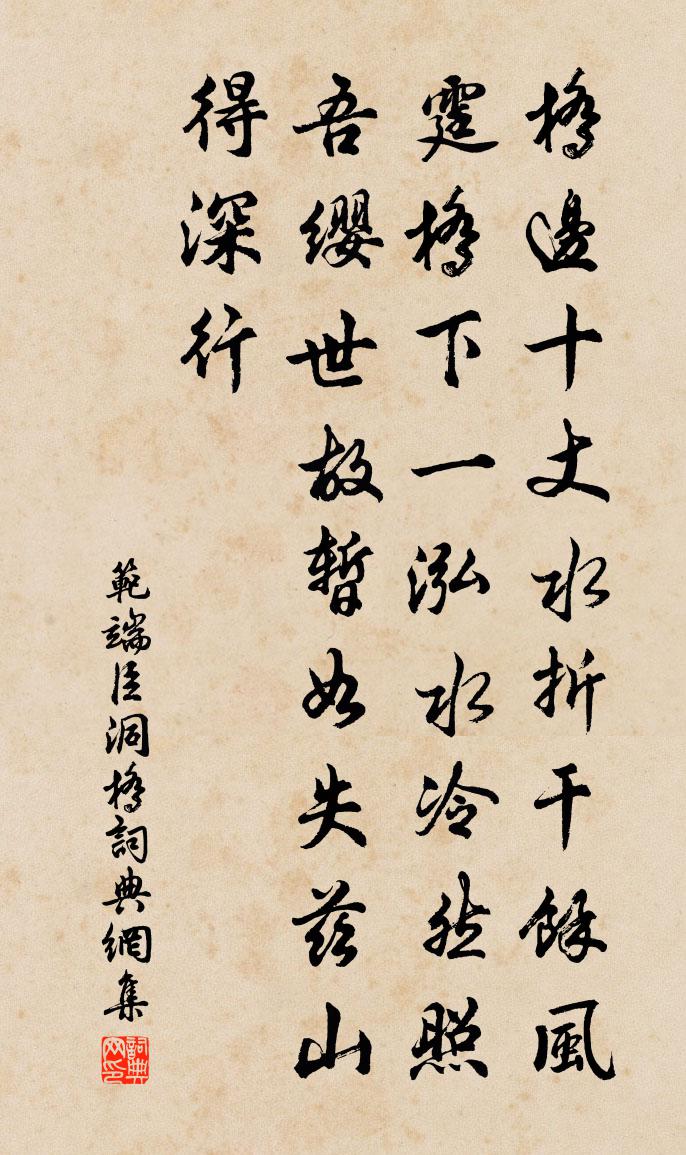 橋邊十丈水折干餘風
霆橋下一泓水冷然照
吾纓世故暫如失茲山
得深行
範端臣洞橋詞典網集
詞典网印